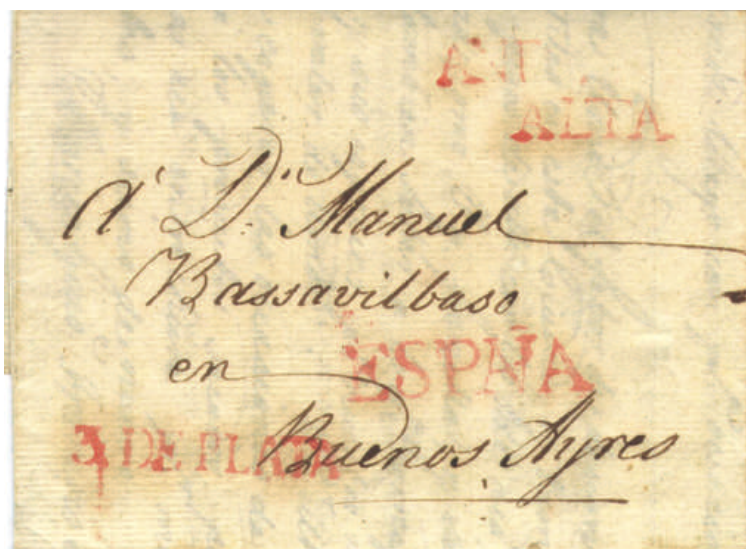 ANT
ALTA
A' Dn. Manuel
Bassavilbaso
ESPÑA
en
3 DE PLATA
Buenos Ayres